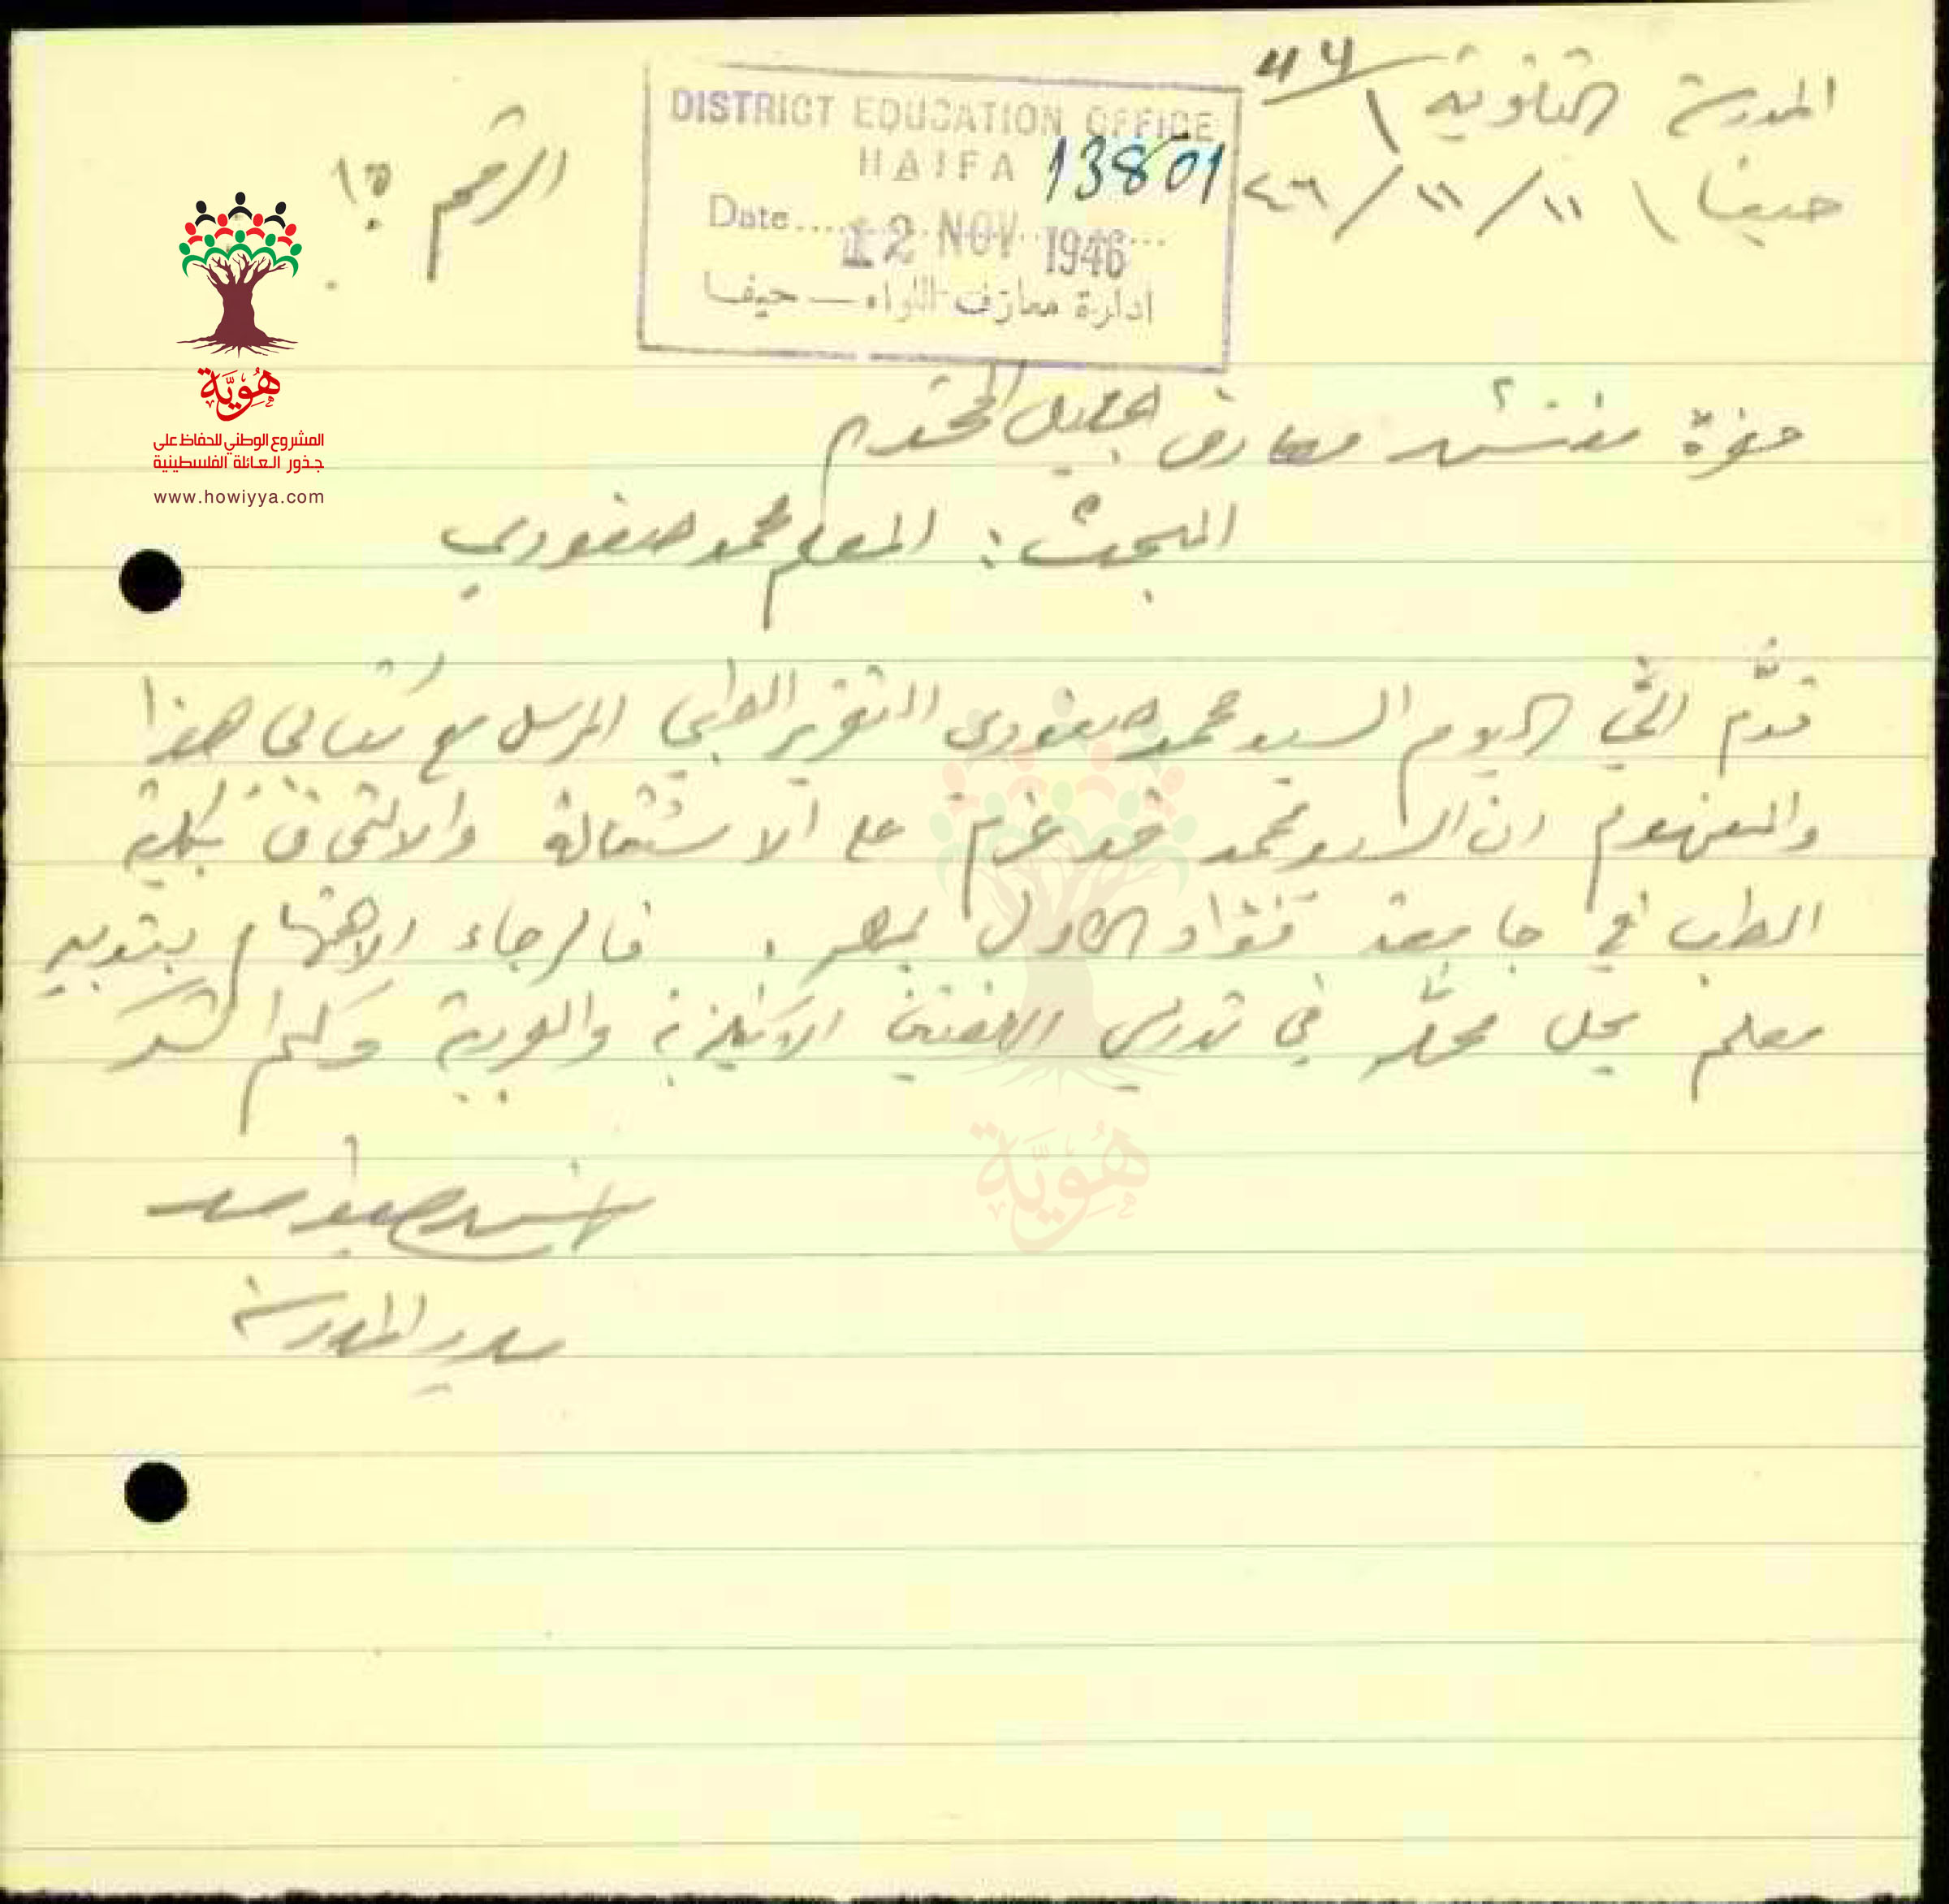 المدرسة الثانوية
حيفا ١١/١١/٤٦
DISTRICT EDUCATION OFFICE
HAIFA 13801
Date 12 NOV 1946
ادارة معارف اللواء — حيفا
الرقم
هُوِيَّة
المشروع الوطني للحفاظ على
جذور العائلة الفلسطينية
www.howiyya.com
حضرة مفتش معارف الجليل المحترم
المبحث: المعلم محمد صفوري
قدّم اليّ اليوم السيد محمد صفوري التقرير الطبي المرسل مع كتابي هذا
والمفهوم ان السيد محمد قد عزم على الاستقالة والالتحاق بكلية
الطب في جامعة فؤاد الاول بمصر. فالرجاء الاهتمام بتدبير
معلم يحل محلّه في تدريس اللغتين الانكليزية والعربية ولكم الشكر
مدير المدرسة
هُوِيَّة